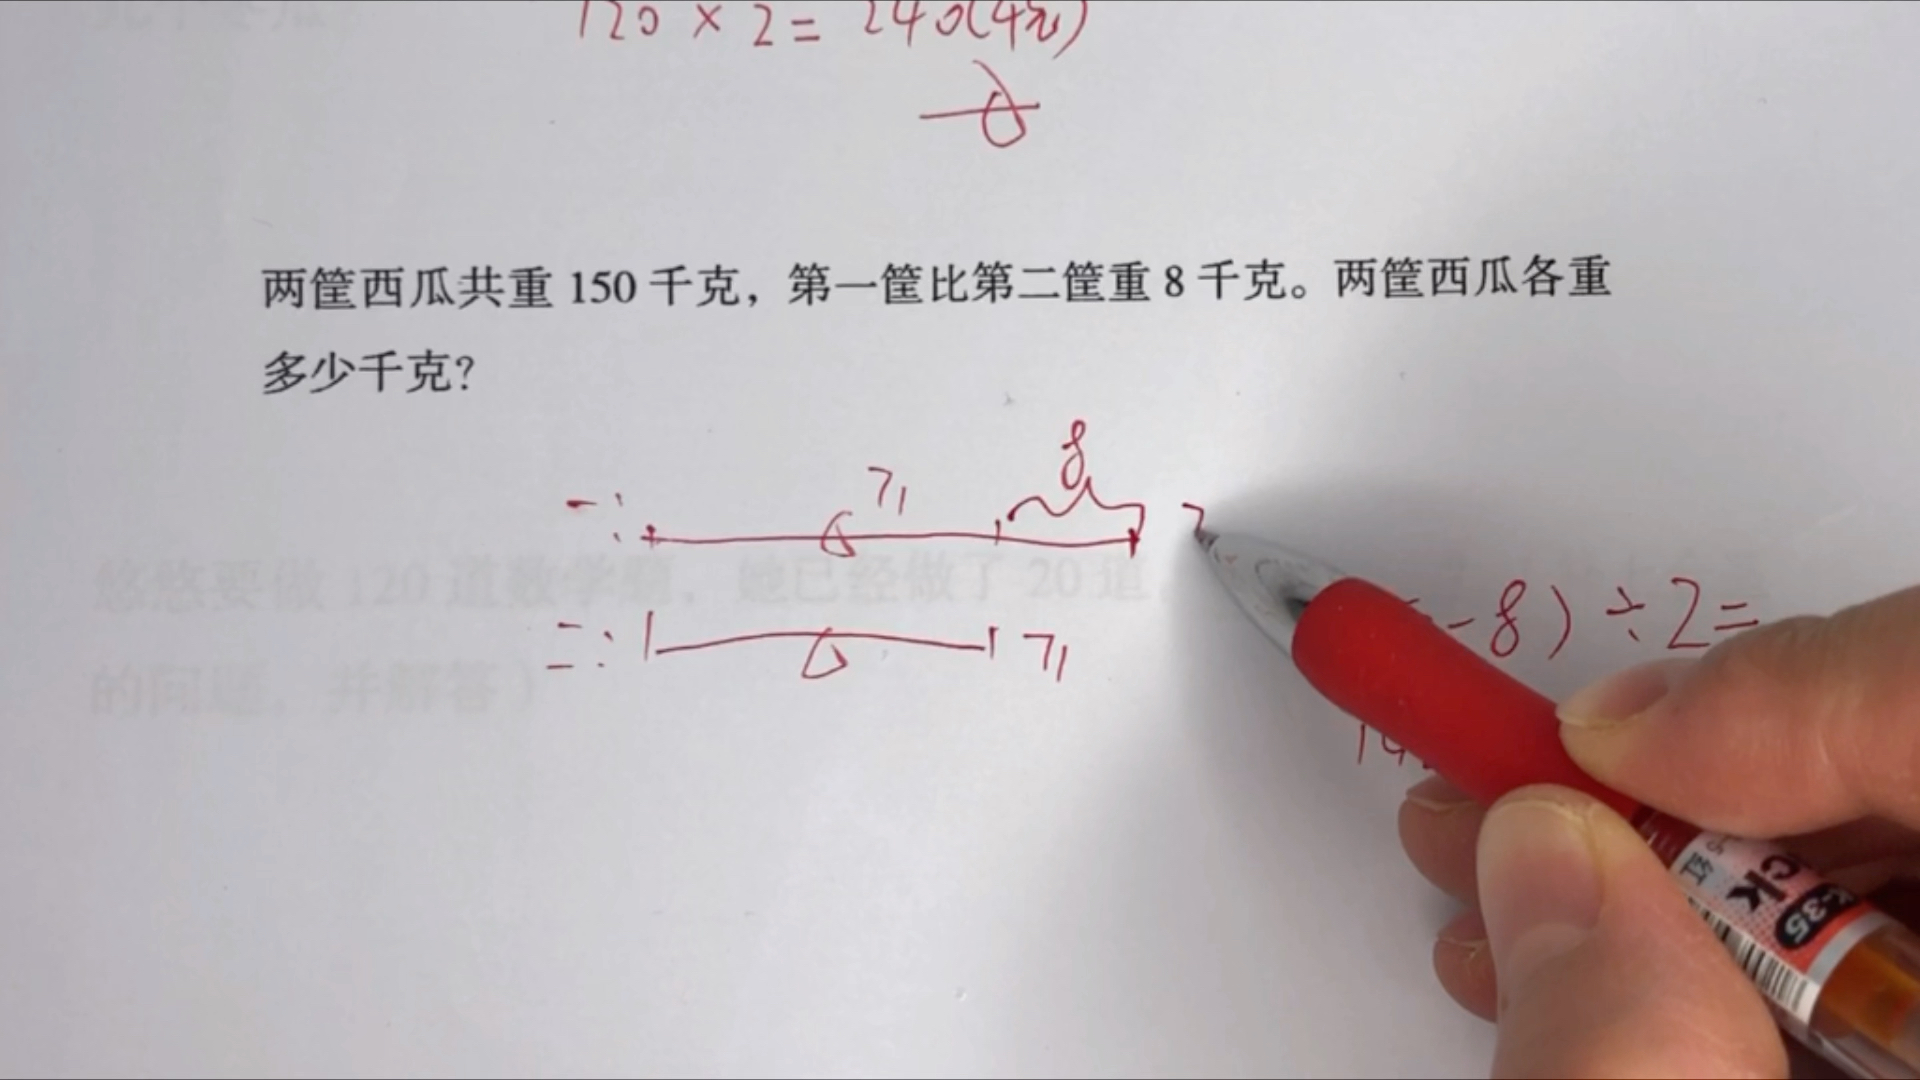 120 × 2 = 240(48)
两筐西瓜共重 150 千克，第一筐比第二筐重 8 千克。两筐西瓜各重
多少千克?
8
一: 71 7
-8) ÷2=
二: 71
14
悠悠要做 120 道数学题，她已经做了 20 道
的问题，并解答）
ck
K-35
红